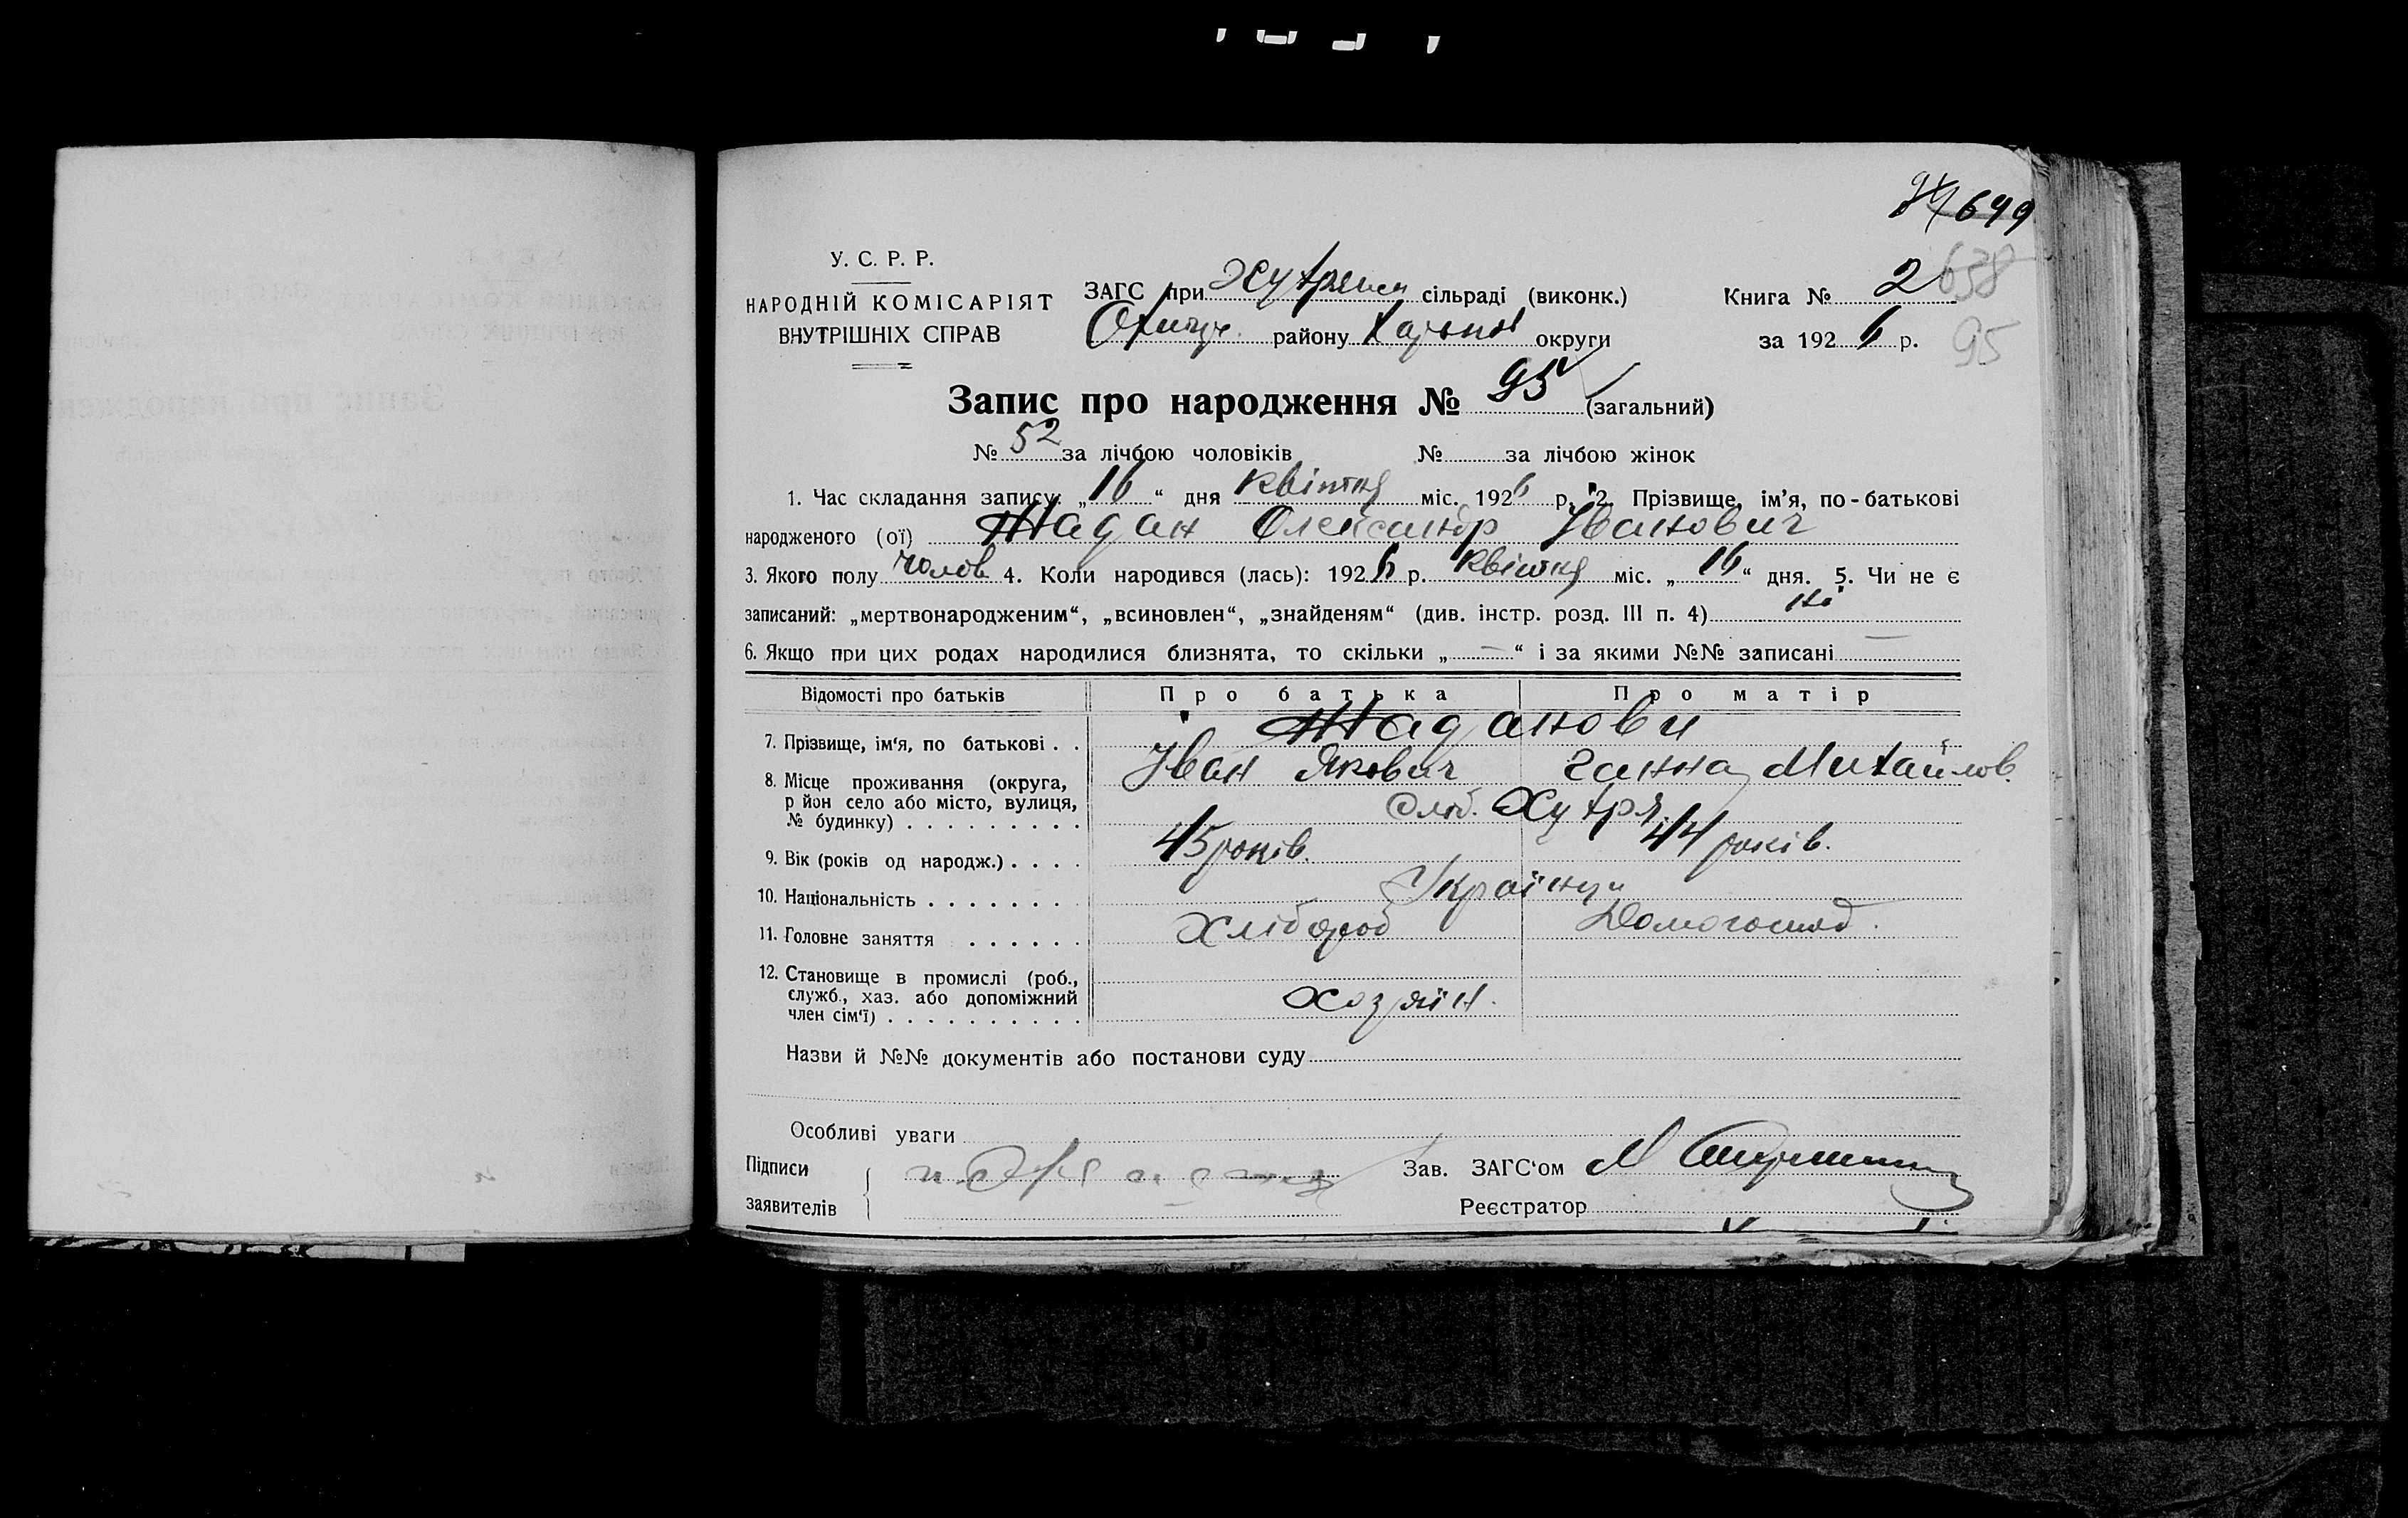 649
У. С. Р. Р.
НАРОДНІЙ КОМІСАРІЯТ
ВНУТРІШНІХ СПРАВ
ЗАГС при сільраді (виконк.)
району округи
Книга № 2 638
за 1926 р. 95
Запис про народження № 95 (загальний)
№ 52 за лічбою чоловіків № за лічбою жінок
1. Час складання запису: „16“ дня квітня міс. 1926 р. 2. Прізвище, ім’я, по-батькові
народженого (ої) Жадан Олександр Іванович
3. Якого полу чолов 4. Коли народився (лась): 1926 р. квітня міс. „16“ дня. 5. Чи не є
записаний: „мертвонародженим“, „всиновлен“, „знайденям“ (див. інстр. розд. III п. 4) ні
6. Якщо при цих родах народилися близнята, то скільки „—“ і за якими №№ записані —
Відомості про батьків Про батька Про матір
7. Прізвище, ім‘я, по батькові . . Жаданови
Іван Якович Ганна Михайлов.
8. Місце проживання (округа,
р йон село або місто, вулиця,
№ будинку) . . . . . . . . . слоб.
9. Вік (років од народж.) . . . . 45 років. 44 років.
10. Національність . . . . . . . Українци
11. Головне заняття . . . . . . Хлібороб Домогоспод.
12. Становище в промислі (роб.,
служб., хаз. або допоміжний
член сім‘ї) . . . . . . . . . . Хозяїн.
Назви й №№ документів або постанови суду
Особливі уваги
Підписи
заявителів
Зав. ЗАГС‘ом
Реєстратор